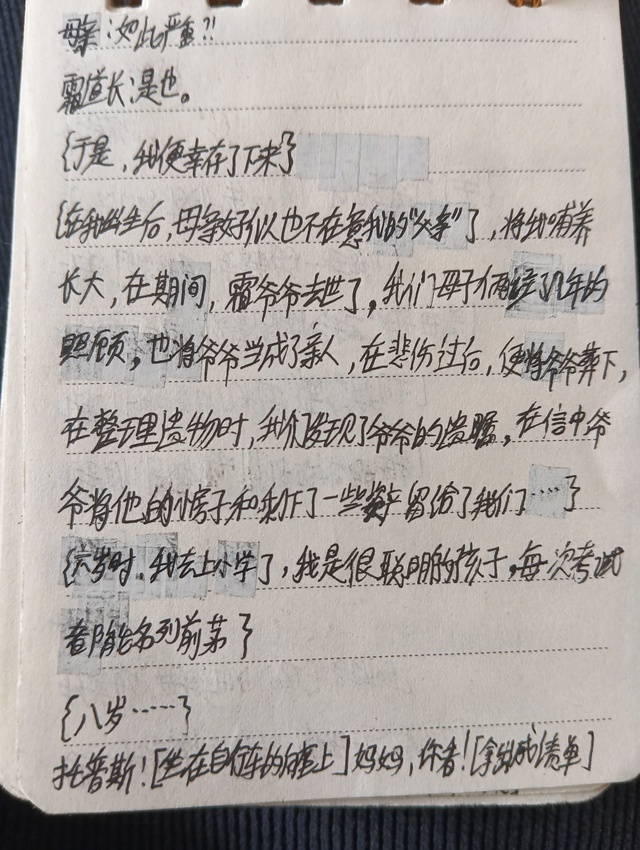 母亲：如此严重?!
霜道长：是也。
{于是，我便幸存了下来}
{在我出生后，母亲好似也不在意我的“父亲”了，将我哺养
长大，在期间，霜爷爷去世了，我们母子俩 了几年的
照顾，也将爷爷当成了亲人，在悲伤过后，便将爷爷葬下，
在整理遗物时，我们发现了爷爷的遗嘱，在信中爷
爷将他的小房子和剩下了一些资产留给了我们……}
{六岁时，我去上小学了，我是很聪明的孩子，每次考试
都能名列前茅}
{八岁……}
托普斯！[坐在自行车的后座上]妈妈，你看！[拿出成绩单]